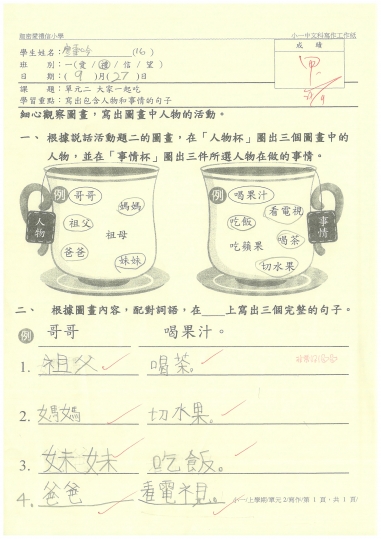 小一中文科寫作工作紙
學生姓名： (16)
成 績
甲
班 別：一(愛／德／信／望)
日 期：( 9 )月( 27 )日
課 題：單元二 大家一起吃
學習重點：寫出包含人物和事情的句子
細心觀察圖畫，寫出圖畫中人物的活動。
一、 根據說話活動題二的圖畫，在「人物杯」圈出三個圖畫中的
人物，並在「事情杯」圈出三件所選人物在做的事情。
例 哥哥 媽媽 祖父 祖母 爸爸 妹妹
人物
例 喝果汁 看電視 吃飯 喝茶 吃蘋果 切水果
事情
二、 根據圖畫內容，配對詞語，在____上寫出三個完整的句子。
例 哥哥 喝果汁。
1. 祖父 喝茶。
2. 媽媽 切水果。
3. 妹妹 吃飯。
4. 爸爸 看電視。
小一/上學期/單元2/寫作/第 1 頁，共 1 頁/